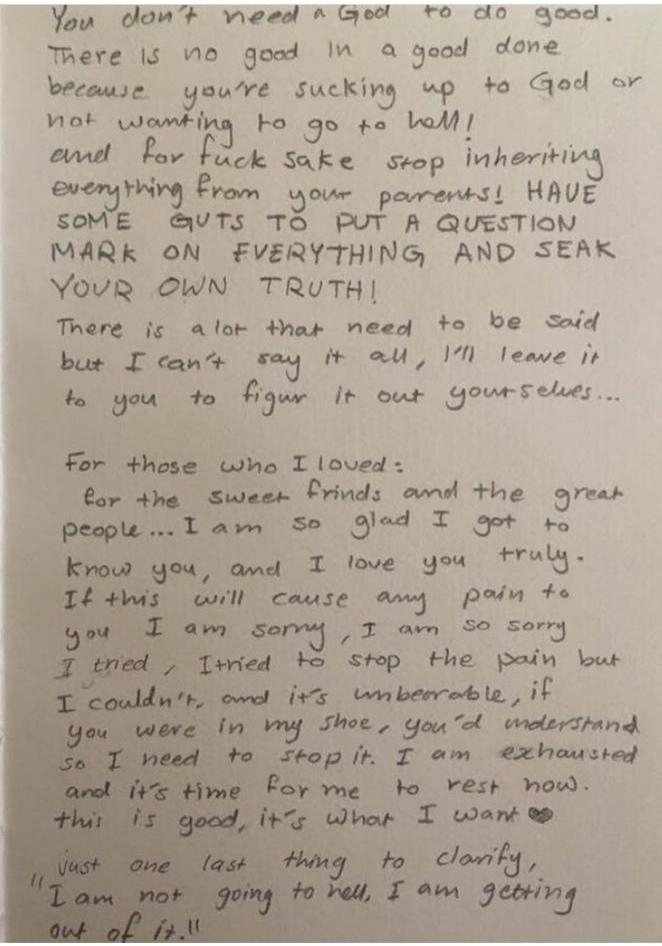 You don't need a God to do good.
There is no good in a good done
because you're sucking up to God or
not wanting to go to hell!
and for fuck sake stop inheriting
everything from your parents! HAVE
SOME GUTS TO PUT A QUESTION
MARK ON EVERYTHING AND SEAK
YOUR OWN TRUTH!
There is a lot that need to be said
but I can't say it all, I'll leave it
to you to figur it out yourselves...
For those who I loved:
for the sweet frinds and the great
people... I am so glad I got to
know you, and I love you truly.
If this will cause any pain to
you I am sorry, I am so sorry
I tried, I tried to stop the pain but
I couldn't, and it's unbearable, if
you were in my shoe, you'd understand
so I need to stop it. I am exhausted
and it's time for me to rest now.
this is good, it's what I want ♥
just one last thing to clarify,
"I am not going to hell, I am getting
out of it."